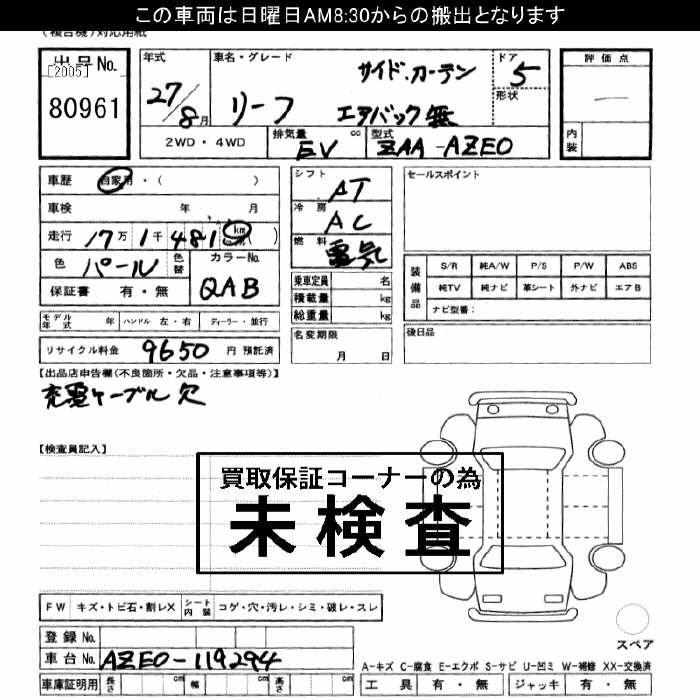 この車両は日曜日AM8:30からの搬出となります
(複合機)対応用紙
出品No.
[2005]
80961
年式
27/8月
車名・グレード
リーフ
サイド.カーテン
エアバック無
ドア
5
形状
評価点
内装
2WD・4WD
排気量 cc
EV
型式
ZAA-AZE0
車歴 自家用・( )
車検 年 月
走行 17万1千481 km ( )
色 パール 色替
カラーNo.
QAB
保証書 有・無
モデル年式 年 ハンドル 左・右 ディーラー・並行
リサイクル料金 9650 円 預託済
シフト
AT
冷房
AC
燃料
電気
乗車定員 名
積載量 kg
総重量 kg
名変期限
月 日
セールスポイント
装備品
S/R 純A/W P/S P/W ABS
純TV 純ナビ 革シート 外ナビ エアB
ナビ型番:
後日品
【出品店申告欄(不良箇所・欠品・注意事項等)】
充電ケーブル欠
【検査員記入】
買取保証コーナーの為
未検査
FW キズ・トビ石・割レX シート内装 コゲ・穴・汚レ・シミ・破レ・スレ
登録No.
車台No. AZE0-119294
車庫証明用 長さ cm 幅 cm 高さ cm
スペア
A-キズ C-腐食 E-エクボ S-サビ U-凹ミ W-補修 XX-交換済
工具 有・無 ジャッキ 有・無